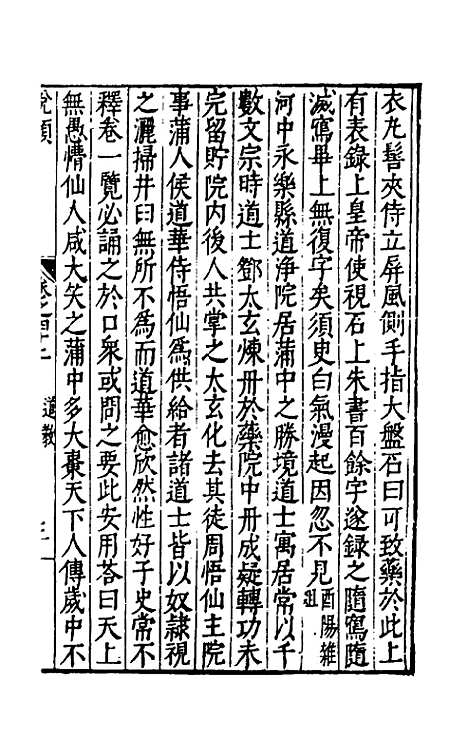 衣丸髻夾侍立屏風側手指大盤石曰可致藥於此上
有表錄上皇帝使視石上朱書百餘字遂錄之隨寫隨
滅寫畢上無復字矣須臾白氣漫起因忽不見酉陽雜俎
河中永樂縣道淨院居蒲中之勝境道士寓居常以千
數文宗時道士鄧太玄煉丹於藥院中丹成疑轉功未
完留貯院內後人共掌之太玄化去其徒周悟仙主院
事蒲人侯道華侍悟仙為供給者諸道士皆以奴隸視
之灑掃井臼無所不為而道華愈欣然性好子史常不
釋卷一覽必誦之於口眾或問之要此安用荅曰天上
無愚懵仙人咸大笑之蒲中多大棗天下人傳歲中不
說類
卷之四十二
道教
三